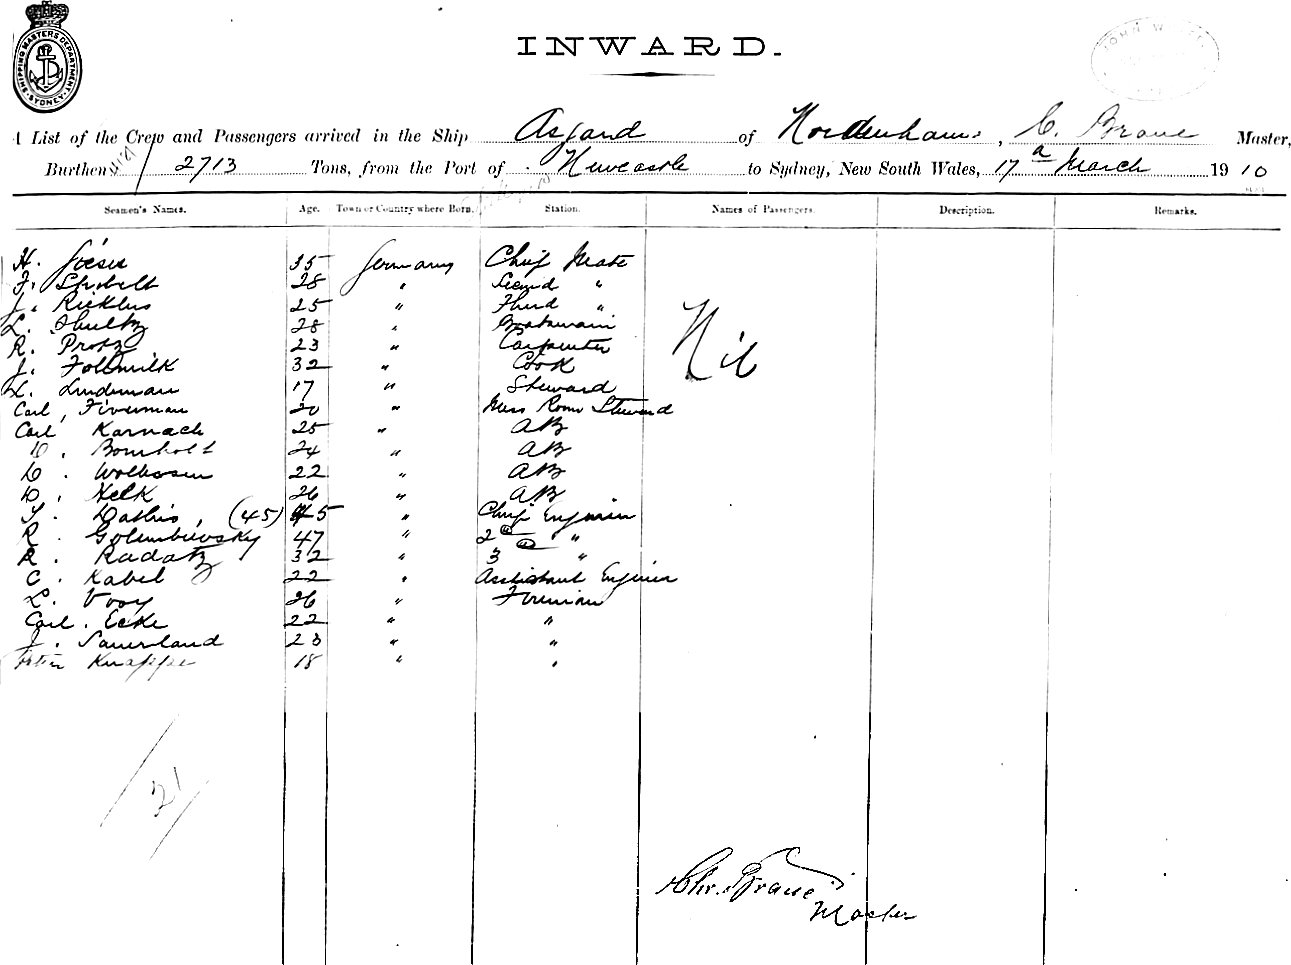 SHIPPING MASTERS DEPARTMENT SYDNEY
INWARD.
A List of the Crew and Passengers arrived in the Ship Asgard of Nordenham, C. Braue Master,
Burthen 2713 Tons, from the Port of Newcastle to Sydney, New South Wales, 17th March 1910
Seamen's Names. Age. Town or Country where Born. Station. Names of Passengers. Description. Remarks.
H. 35 Germany Chief Mate
F. 28 " Second "
J. Ricklus 25 " Third "
L. Shultz 28 " Boatswain
R. Protz 23 " Carpenter
J. 32 " Cook
L. Lindeman 17 " Steward
Carl, 20 " Mess Room Steward
Carl Karnach 25 " AB
D. Bomholt 24 " AB
D. 22 " AB
D. Helk 26 " AB
(45) 45 " Chief Engineer
R. Golembievsky 47 " 2nd "
R. Radatz 32 " 3 "
C. Kabel 22 " Assistant Engineer
L. 26 " Fireman
Carl. Ecke 22 " "
J. Sauerland 23 " "
Knappe 18 " "
Nil
21
Chr. Braue
Master